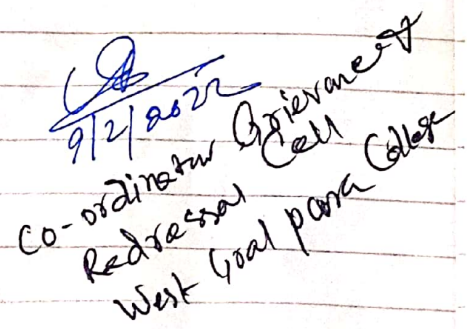 9/2/2022
Co-ordinator Grievance &
Redressal Cell
West Goalpara College